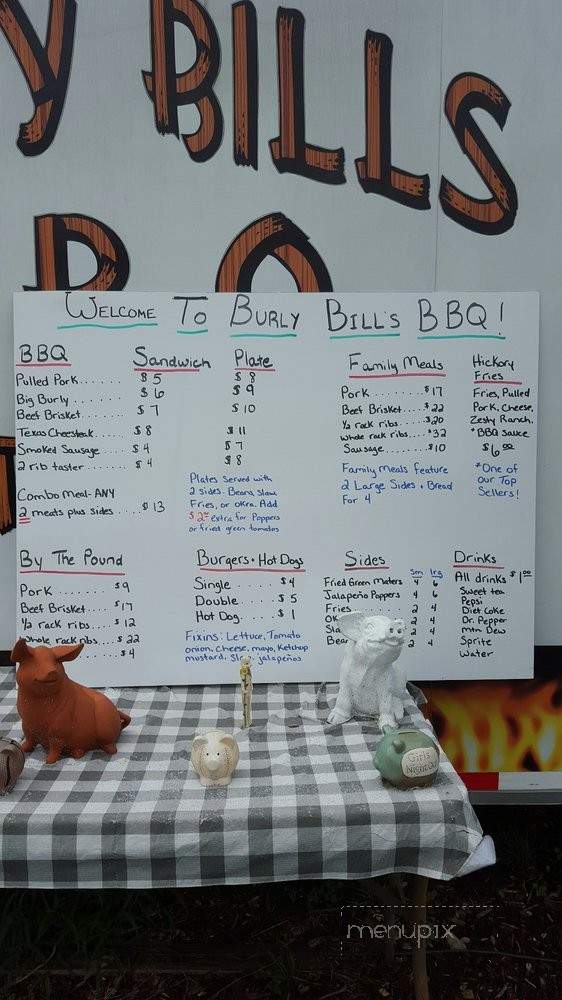 Y BILLS
WELCOME TO BURLY BILL'S BBQ!
BBQ Sandwich Plate
Pulled Pork...... $5 $8
Big Burly........ $6 $9
Beef Brisket..... $7 $10
Texas Cheesesteak.... $8 $11
Smoked Sausage.... $4 $7
2 rib taster...... $4 $8
Combo Meal-ANY
2 meats plus sides....$13
Plates served with
2 sides. Beans, Slaw
Fries, or Okra. Add
$2.00 extra for Poppers
or fried green tomatoes
Family Meals
Pork.........$17
Beef Brisket....$22
1/2 rack ribs....$20
Whole rack ribs...$32
Sausage.......$10
Family Meals feature
2 Large Sides + Bread
For 4
Hickory
Fries
Fries, Pulled
Pork, Cheese,
Zesty Ranch.
*BBQ Sauce
$6.00
*One of
our Top
Sellers!
By The Pound
Pork........ $9
Beef Brisket... $17
1/2 rack ribs... $12
Whole rack ribs.... $22
$4
Burgers + Hot Dogs
Single........$4
Double.......$5
Hot Dog.....$1
Fixins: Lettuce, Tomato
onion, cheese, mayo, Ketchup
mustard, jalapeños
Sides
Sm Lrg
Fried Green Maters 4 6
Jalapeño Poppers 4 6
Fries 2 4
2 4
2 4
2 4
Drinks
All drinks $1.00
Sweet tea
Pepsi
Diet Coke
Dr. Pepper
mtn Dew
Sprite
Water
Girls
Night Out
menupix